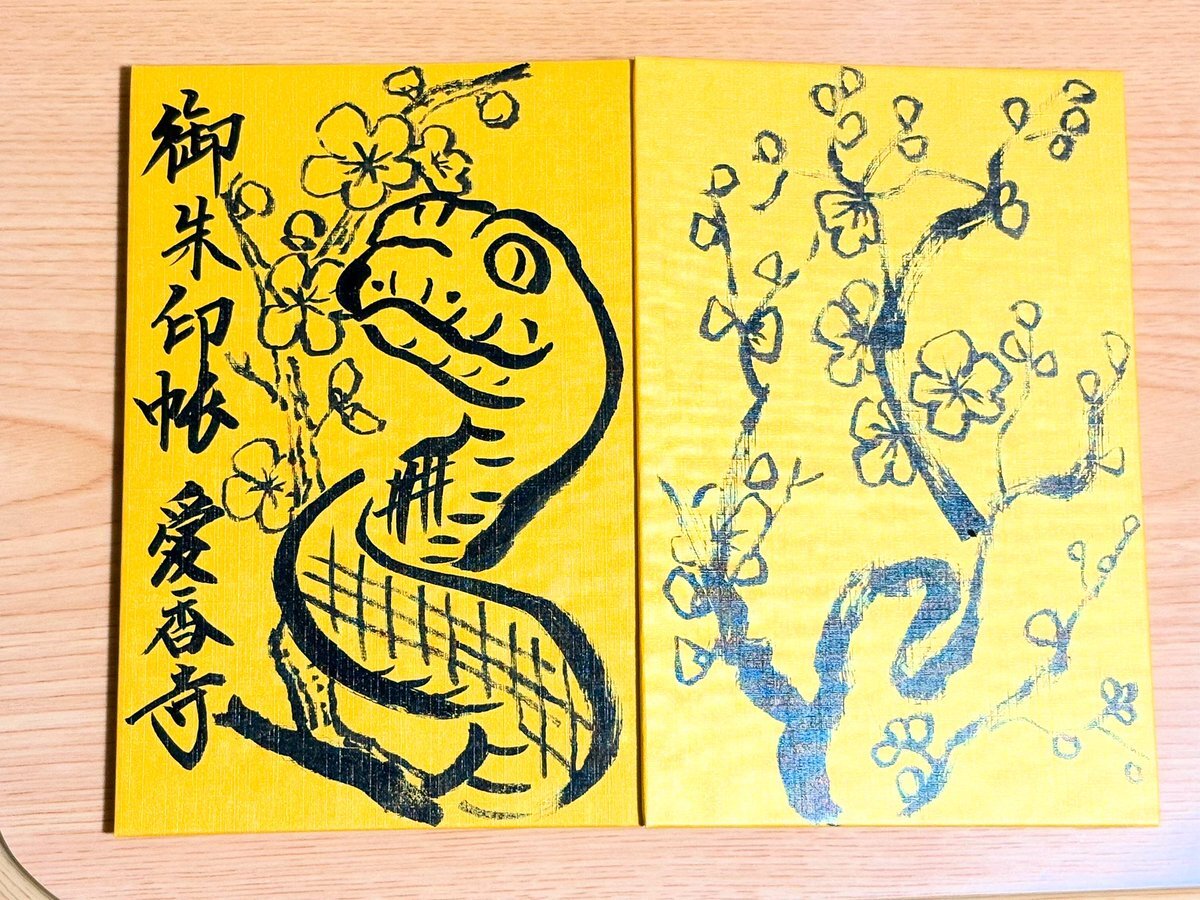 御朱印帳 愛香寺